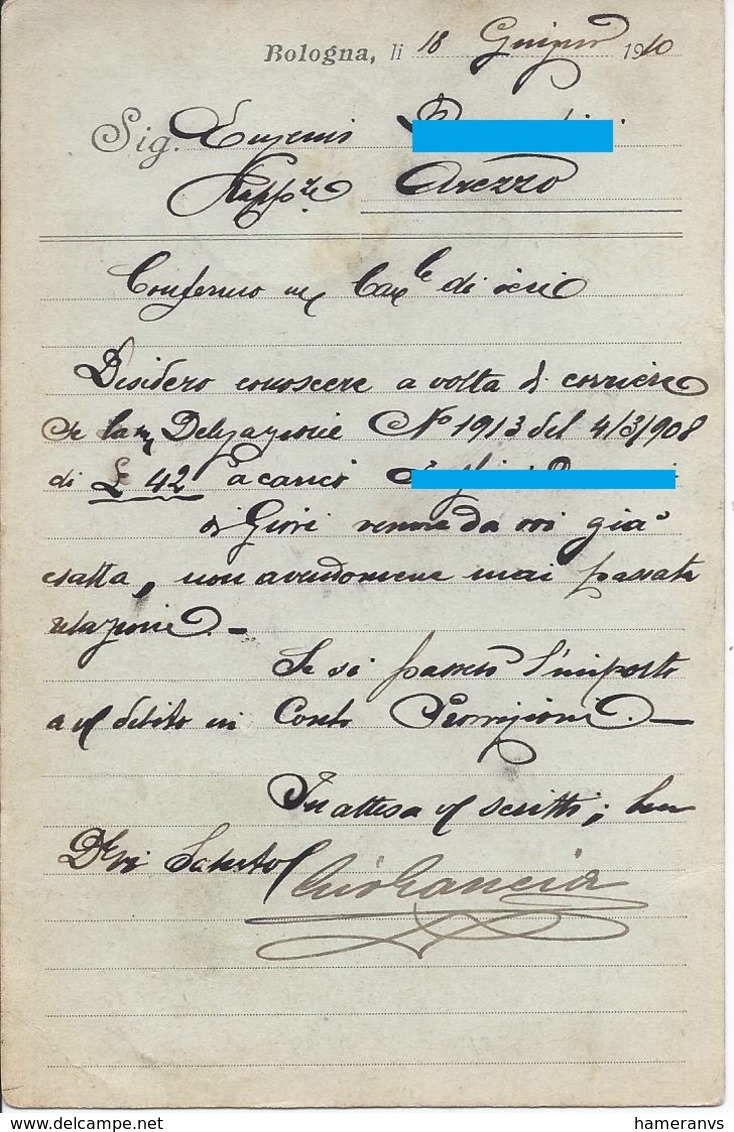 Bologna, li 18 Giugno 1910
Sig. Eugenio
Rapp.te Arezzo
Confermo mia di ieri
Desidero conoscere a volta di corriere
se la Delegazione No 1913 del 4/3/908
di £ 42 a carico
di Giovi venne da voi già
esatta, non avendomene mai passata
relazione. -
Se si passerò l'importo
a debito in Conto Provvigioni. -
In attesa scritti;
Saluto
hameranvs